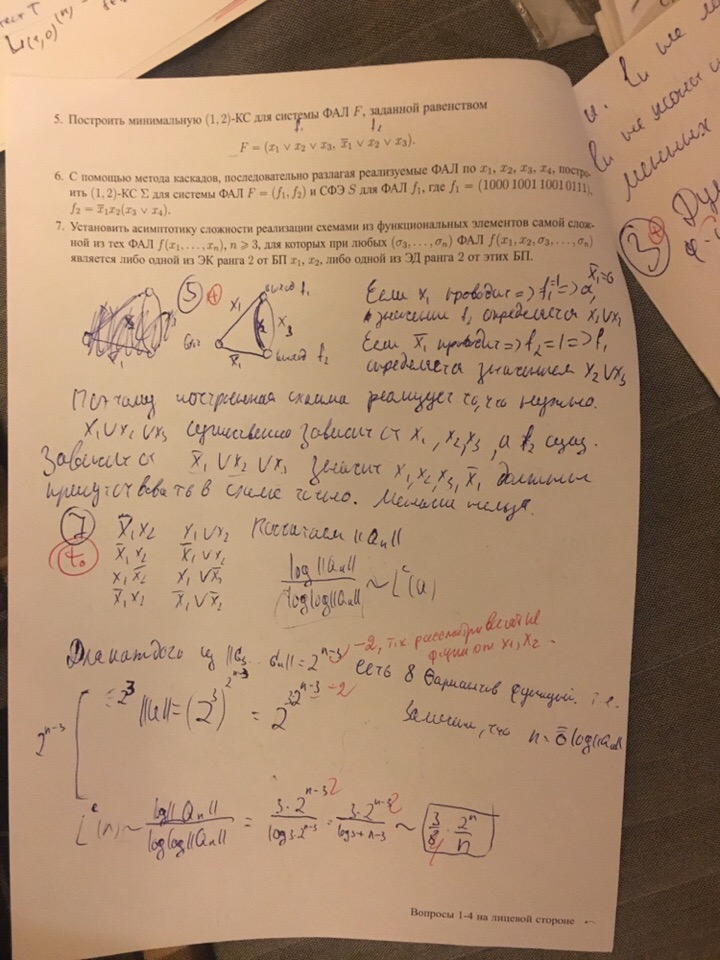 5. Построить минимальную (1, 2)-КС для системы ФАЛ F, заданной равенством
f₁ f₂
F = (x₁ ∨ x₂ ∨ x₃, x̄₁ ∨ x₂ ∨ x₃).
6. С помощью метода каскадов, последовательно разлагая реализуемые ФАЛ по x₁, x₂, x₃, x₄, постро-
ить (1, 2)-КС Σ для системы ФАЛ F = (f₁, f₂) и СФЭ S для ФАЛ f₁, где f₁ = (1000 1001 1001 0111),
f₂ = x̄₁x₂(x₃ ∨ x₄).
7. Установить асимптотику сложности реализации схемами из функциональных элементов самой слож-
ной из тех ФАЛ f(x₁, …, xₙ), n ⩾ 3, для которых при любых (σ₃, …, σₙ) ФАЛ f(x₁, x₂, σ₃, …, σₙ)
является либо одной из ЭК ранга 2 от БП x₁, x₂, либо одной из ЭД ранга 2 от этих БП.
5 +
выход f₁
x₁ x₂ x₃
x̄₁ выход f₂
Если x₁ проводит => f₁=1 => x̄₁=0
значение f₂ определяется x₂∨x₃
Если x̄₁ проводит => f₂=1 => f₁
определяется значением x₂∨x₃
Поэтому построенная схема реализует то, что нужно.
x₁∨x₂∨x₃ существенно зависит от x₁, x₂, x₃, а f₂ сущ.
Зависит от x̄₁∨x₂∨x₃ значит x₁, x₂, x₃, x̄₁ должны
присутствовать в схеме точно. Меньше нельзя.
7
x̄₁x₂ x₁∨x₂ Посчитаем ||aₙ||
x̄₁x₂ x̄₁∨x₂
x₁x̄₂ x₁∨x̄₂
x̄₁x₂ x̄₁∨x̄₂
log||aₙ|| / loglog||aₙ|| ~ L^c(a)
Для каждого из ||σ₃…σₙ|| = 2ⁿ⁻³
-2, т.к. рассматриваете
ф-ции от x₁, x₂.
есть 8 вариантов функций. т.е.
2ⁿ⁻³
=2³ ||a|| = (2³)^(2ⁿ⁻³) = 2^(3·2ⁿ⁻³) -2
Заметим, что n = ō log||aₙ||
L^c(n) ~ log||aₙ|| / loglog||aₙ|| = 3·2ⁿ⁻³ / log3·2ⁿ⁻³ = 3·2ⁿ⁻³ / log3+n-3 ~ 3/8 · 2ⁿ/n
2 2
Вопросы 1-4 на лицевой стороне
3 +